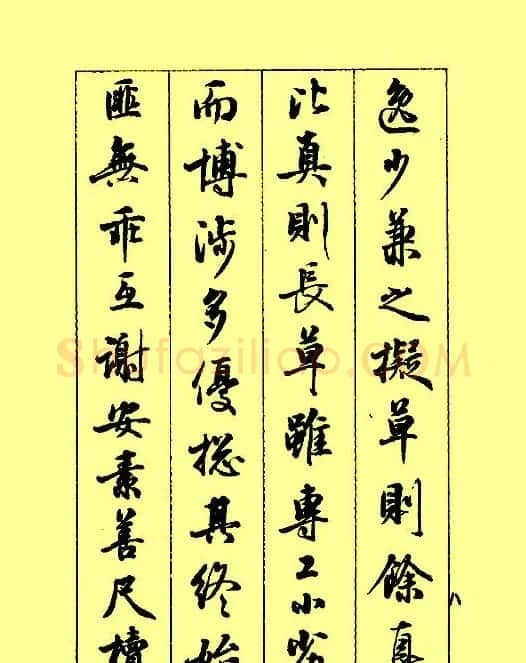 逸少兼之擬草則餘真
比真則長草雖專工小劣
而博涉多優揔其終始
匪無乖互謝安素善尺櫝
Shufaziliao.COM